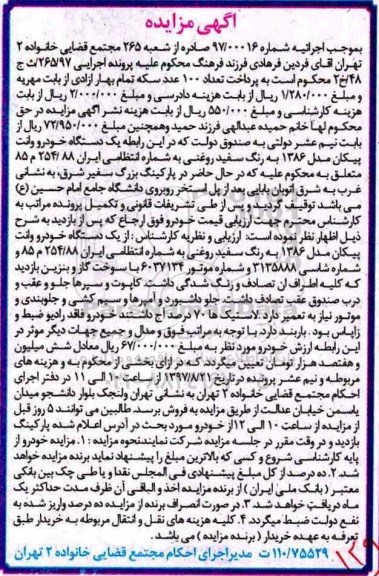 آگهی مزایده
بموجب اجرائیه شماره ۹۷/۰۰۰۱۶ صادره از شعبه ۲۶۵ مجتمع قضایی خانواده ۲
تهران آقای فردین فرهادی فرزند فرهنگ محکوم علیه پرونده اجرایی ۲۶۵/۹۷/ث ج
۴۸/خ۲ محکوم است به پرداخت تعداد ۱۰۰ عدد سکه تمام بهار آزادی از بابت مهریه
و مبلغ ۱/۲۸۰/۰۰۰ ریال از بابت هزینه دادرسی و مبلغ ۲/۰۰۰/۰۰۰ ریال از بابت
هزینه کارشناسی و مبلغ ۵۵۰/۰۰۰ ریال از بابت هزینه نشر آگهی مزایده در حق
محکوم لها خانم حمیده عبدالهی فرزند حمید وهمچنین مبلغ ۷۲/۹۵۰/۰۰۰ ریال از
بابت نیم عشر دولتی به صندوق دولت که در این رابطه یک دستگاه خودرو وانت
پیکان مدل ۱۳۸۶ به رنگ سفید روغنی به شماره انتظامی ایران ۸۸ / ۲۵۴ م ۸۵
متعلق به محکوم علیه که در حال حاضر در پارکینگ بزرگ سفیر شرق، به نشانی
غرب به شرق اتوبان بابایی بعد از پل استخر روبروی دانشگاه جامع امام حسین (ع)
می باشد توقیف گردید و پس از طی تشریفات قانونی و تکمیل پرونده مراتب به
کارشناس محترم جهت ارزیابی قیمت خودرو فوق ارجاع که پس از بازدید به شرح
ذیل اظهار نظر نموده است: ارزیابی و نظریه کارشناس : از یک دستگاه خودرو وانت
پیکان مدل ۱۳۸۶ به رنگ سفید روغنی به شماره انتظامی ایران ۲۵۴/۸۸ م ۸۵ و
شماره شاسی ۳۱۳۵۸۸۸ و شماره موتور ۶۰۳۷۱۳۴ با سوخت گاز و بنزین بازدید
که کلیه اطراف آن تصادف و رنگ شدگی داشت. کاپوت و سپرها جلو و عقب و
درب صندوق عقب تصادف داشت. جلو داشبورد و آمپرها و سیم کشی و جلوبندی و
موتور نیاز به تعمیر دارد. ۷ لاستیک ها ۷۰ درصد آج داشتند خودرو فاقد رادیو ضبط و
زاپاس بود . باربند دارد. با توجه به مراتب فوق و مدل و جمیع جهات دیگر موثر در
این رابطه ارزش خودرو مورد نظر به مبلغ ۶۷/۰۰۰/۰۰۰ ریال معادل شش میلیون
و هفتصد هزار تومان تعیین میگردد که در ازای بخشی از محکوم به و هزینه های
مربوطه و نیم عشر پرونده در تاریخ ۱۳۹۷/۸/۲۱ از ساعت ۱۰ الی ۱۱ در دفتر اجرای
احکام مجتمع قضایی خانواده ۲ تهران به نشانی تهران ولنجک بلوار دانشجو میدان
یاسمن خیابان عدالت از طریق مزایده به فروش برسد. طالبین می توانند ۵ روز قبل
از مزایده از ساعت ۱۰ الی ۱۲ از خودرو مورد بحث در آدرس اعلام شده پارکینگ
بازدید و در وقت مقرر در جلسه مزایده شرکت نمایندنحوه مزایده : ۱. مزایده خودرو از
پایه کارشناسی شروع و کسی که بالاترین مبلغ را پیشنهاد نماید برنده مزایده خواهد
شد. ۲. ده درصد از کل مبلغ پیشنهادی فی المجلس نقدا و یا طی چک بین بانکی
معتبر ( بانک ملی ایران ) از برنده مزایده اخذ و الباقی آن ظرف مدت حداکثر یک
ماه دریافت خواهد شد. ۳. در صورت انصراف برنده از مزایده ده درصد واریز شده به
نفع دولت ضبط میگردد ۴. کلیه هزینه های نقل و انتقال مربوطه به خریدار طبق
تعرفه به عهده خریدار ( برنده مزایده ) می باشد .
۱۱۰/۷۵۵۲۹ ت مدیر اجرای احکام مجتمع قضایی خانواده ۲ تهران